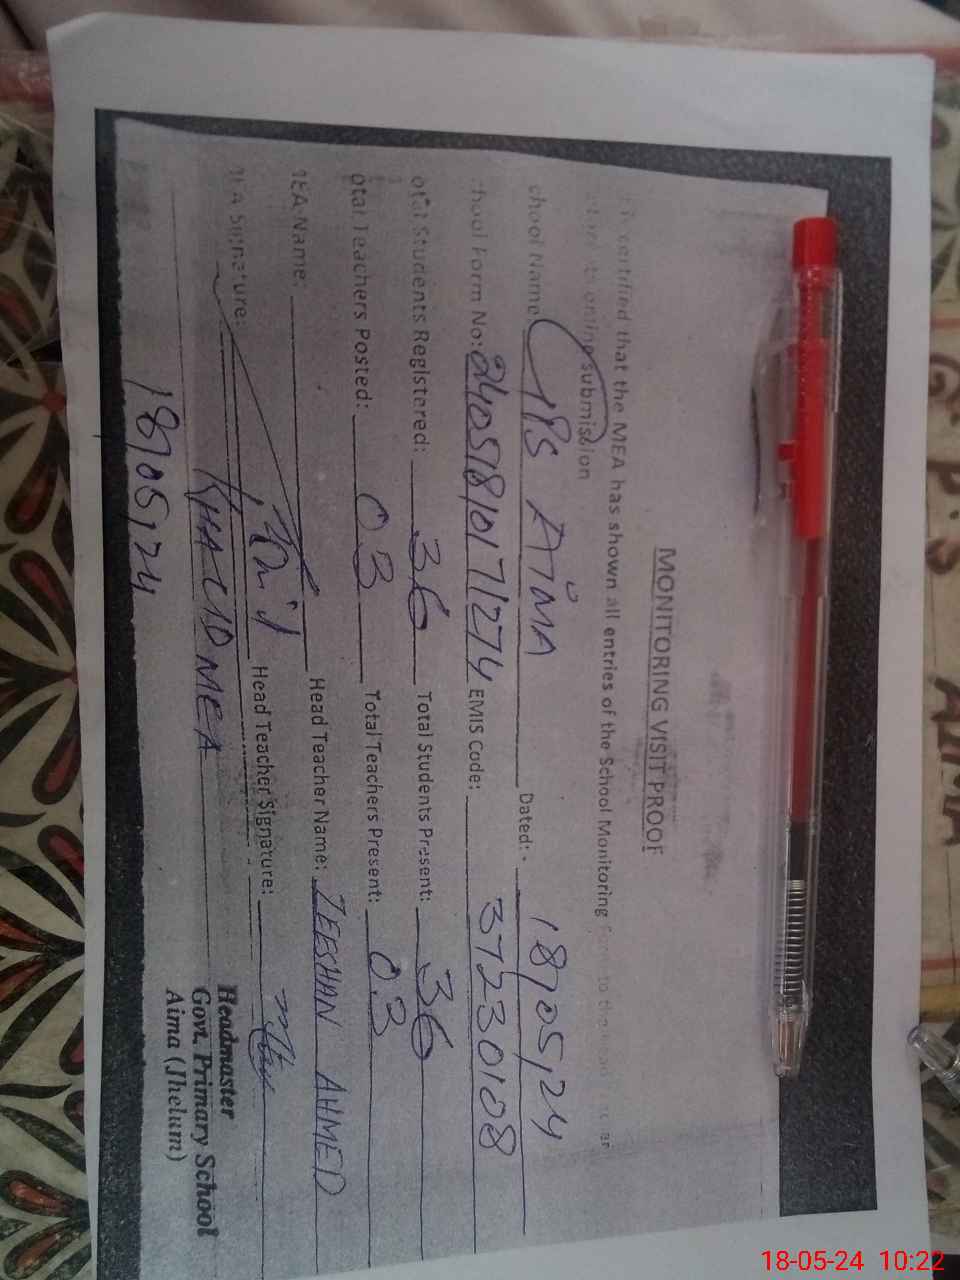 MONITORING VISIT PROOF
certified that the MEA has shown all entries of the School Monitoring Form to the Head
online submission
chool Name GPS AIMA Dated: - 18/05/24
hool Form No: EMIS Code: 37230108
otal Students Registered: 36 Total Students Present: 36
otal Teachers Posted: 03 Total Teachers Present: 03
MEA Name: Head Teacher Name: ZEESHAN AHMED
MEA Signature: Head Teacher Signature:
KHALID MEA
18/05/24
Headmaster
Govt. Primary School
Aima (Jhelum)
G.P.S AIMA
18-05-24 10:22